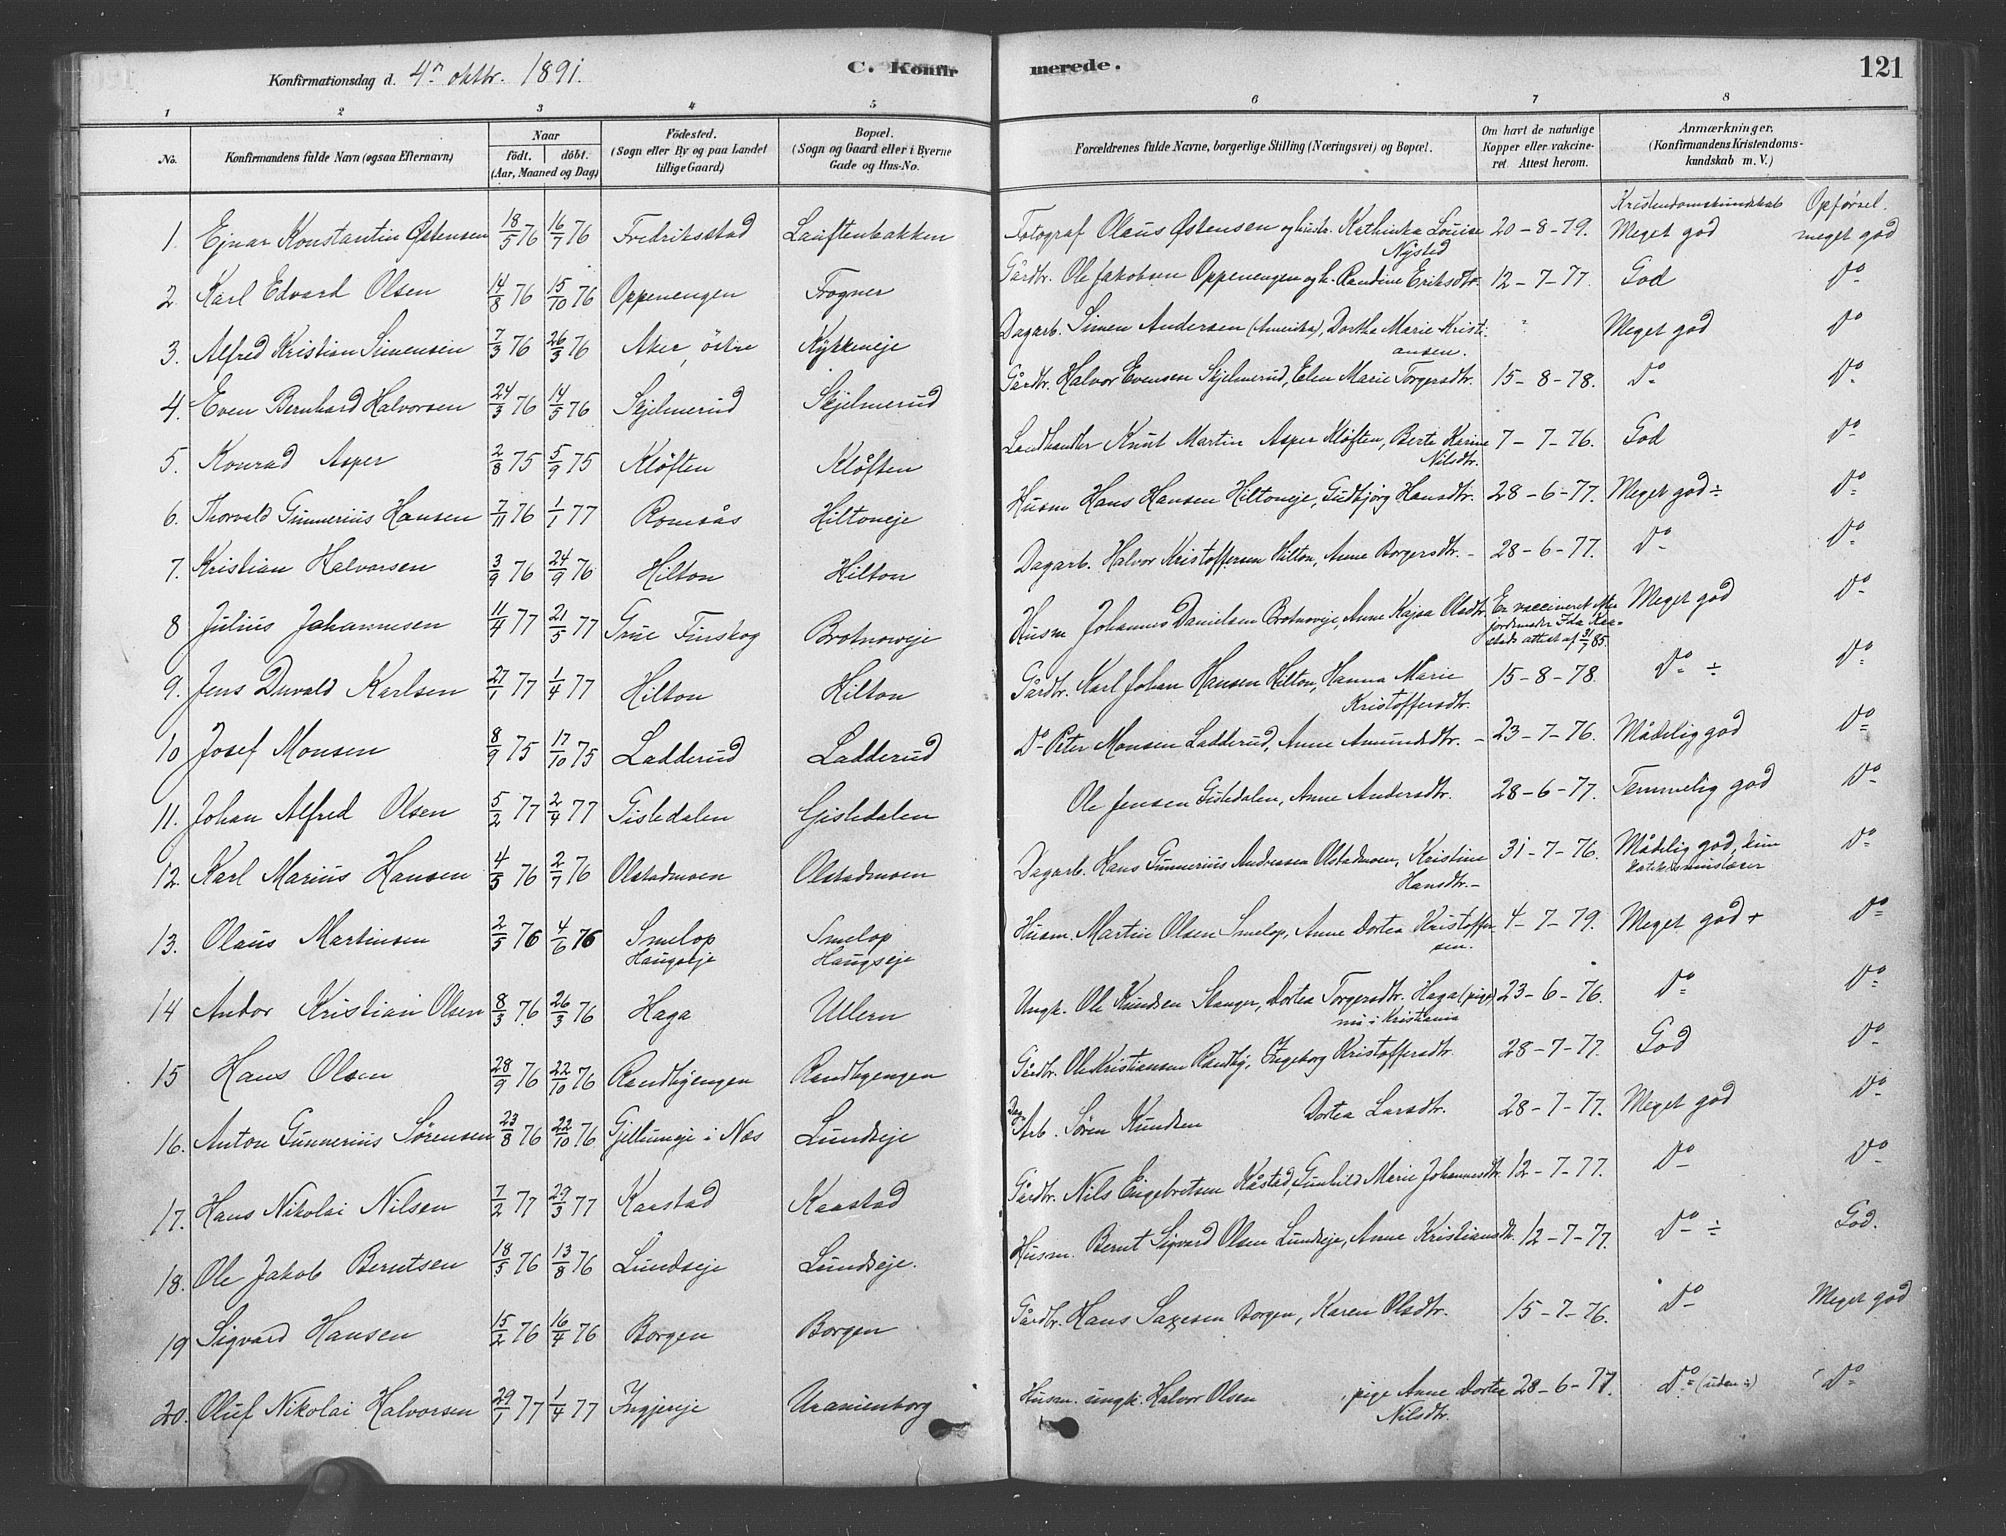 Konfirmationsdag d. 4de oktbr. 1891. C. Konfirmerede. 121
1 2 3 4 5 6 7 8
No. Konfirmandens fulde Navn (ogsaa Efternavn) Naar født. døbt. (Aar, Maaned og Dag) Fødested. (Sogn eller By og paa Landet tillige Gaard) Bopæl. (Sogn og Gaard eller i Byerne Gade og Hus-No. Forældrenes fulde Navne, borgerlige Stilling (Næringsvei) og Bopæl. Om havt de naturlige Kopper eller vakcineret. Attest herom. Anmærkninger. (Konfirmandens Kristendomskundskab m. V.)
Kristendomskundskab Opførsel.
1. Ejnar Konstantin Østensen 18/5 76 16/7 76 Fredriksstad Lauftenbakken Fotograf Olaus Østensen og hustr. Kathinka Louise Nysted 20-8-79. Meget god meget god
2. Karl Edvard Olsen 14/8 76 15/10 76 Oppenengen Frogner Gårdbr. Ole Jakobsen Oppenengen og h. Randine Eriksdtr. 12-7-77. God Do
3. Alfred Kristian Simensen 7/3 76 26/3 76 Aker, östre Kykkeneje Dagarb. Simen Andersen (Amerika), Dorthe Marie Kristiansen. Meget god Do
4. Even Bernhard Halvorsen 24/3 76 14/5 76 Skjelmerud Skjelmerud Gårdbr. Halvor Evensen Skjelmerud, Elen Marie Torgersdtr. 15-8-78. Do Do
5. Konrad Asper 2/8 75 5/9 75 Kløften Kløften Landhandler Knut Martin Asper Kløften, Berte Karine Nilsdtr. 7-7-76. God Do
6. Thorvald Gunnerius Hansen 7/11 76 1/1 77 Romsås Hiltoneje Husm Hans Hansen Hiltoneje, Gudbjørg Hansdtr. 28-6-77. Meget god ÷ Do
7. Kristian Halvorsen 3/9 76 24/9 76 Hilton Hilton Dagarb. Halvor Kristoffersen Hilton, Anne Borgersdtr. 28-6-77. Do Do
8 Julius Johannesen 11/4 77 21/5 77 Grue Finskog Brotnoveje Husm Johannes Danielsen Brotnoveje, Anne Kajsa Olsdtr. Er vaccineret efter jordemoder Ida Kaastads attest af 31/7 85. Meget god Do
9. Jens Duvald Karlsen 27/1 77 1/4 77 Hilton Hilton Gårdbr. Karl Johan Hansen Hilton, Hanna Marie Kristoffersdtr. 15-8-78. Do ÷ Do
10 Josef Monsen 8/9 75 17/10 75 Ladderud Ladderud Do Peter Monsen Ladderud, Anne Amundsdtr. 23-7-76. Mådelig god Do
11. Johan Alfred Olsen 5/2 77 2/4 77 Gisledalen Gisledalen Ole Jensen Gisledalen, Anne Andersdtr. 28-6-77. Temmelig god Do
12. Karl Marius Hansen 4/5 76 2/7 76 Olstadmoen Olstadmoen Dagarb. Hans Gunnerius Andreasen Olstadmoen, Kristine Hansdtr. 31-7-76. Mådelig god, kun Do
13. Olaus Martinsen 2/5 76 4/6 76 Smelop Haugseje Smelop Haugseje Husm. Martin Olsen Smelop, Anne Dortea Kristoffersen. 4-7-79. Meget god + Do
14 Andor Kristian Olsen 8/3 76 26/3 76 Haga Ullern Ungk. Ole Knudsen Stanger, Dortea Torgersdtr. Haga (pige) nu i Kristiania 23-6-76. Do Do
15 Hans Olsen 28/9 76 22/10 76 Randbyengen Randbyengen Gårdbr. Ole Kristiansen Randby, Ingeborg Kristoffersdtr. 28-7-77. God Do
16. Anton Gunnerius Sørensen 23/8 76 22/10 76 Gjellumeje i Næs Lundseje Dag Arb. Søren Knudsen Dortea Larsdtr. 28-7-77. Meget god Do
17. Hans Nikolai Nilsen 7/2 77 29/3 77 Kaastad Kaastad Gårdbr. Nils Engebretsen Kåstad, Gunhild Marie Johannesdtr. 12-7-77. Do Do
18. Ole Jakob Berntsen 18/5 76 13/8 76 Lundseje Lundseje. Husm. Bernt Sigvard Olsen Lundseje, Anne Kristiansdtr. 12-7-77. Do ÷ God.
19 Sigvard Hansen 15/2 76 16/4 76 Borgen Borgen Gårdbr. Hans Saxesen Borgen, Karen Olsdtr. 15-7-76. Do Meget god
20. Oluf Nikolai Halvorsen 29/1 77 1/4 77 Ingjereje Uranienborg Husm. ungk. Halvor Olsen , pige Anne Dortea Nilsdtr. 28-6-77. Do (uden ÷) Do